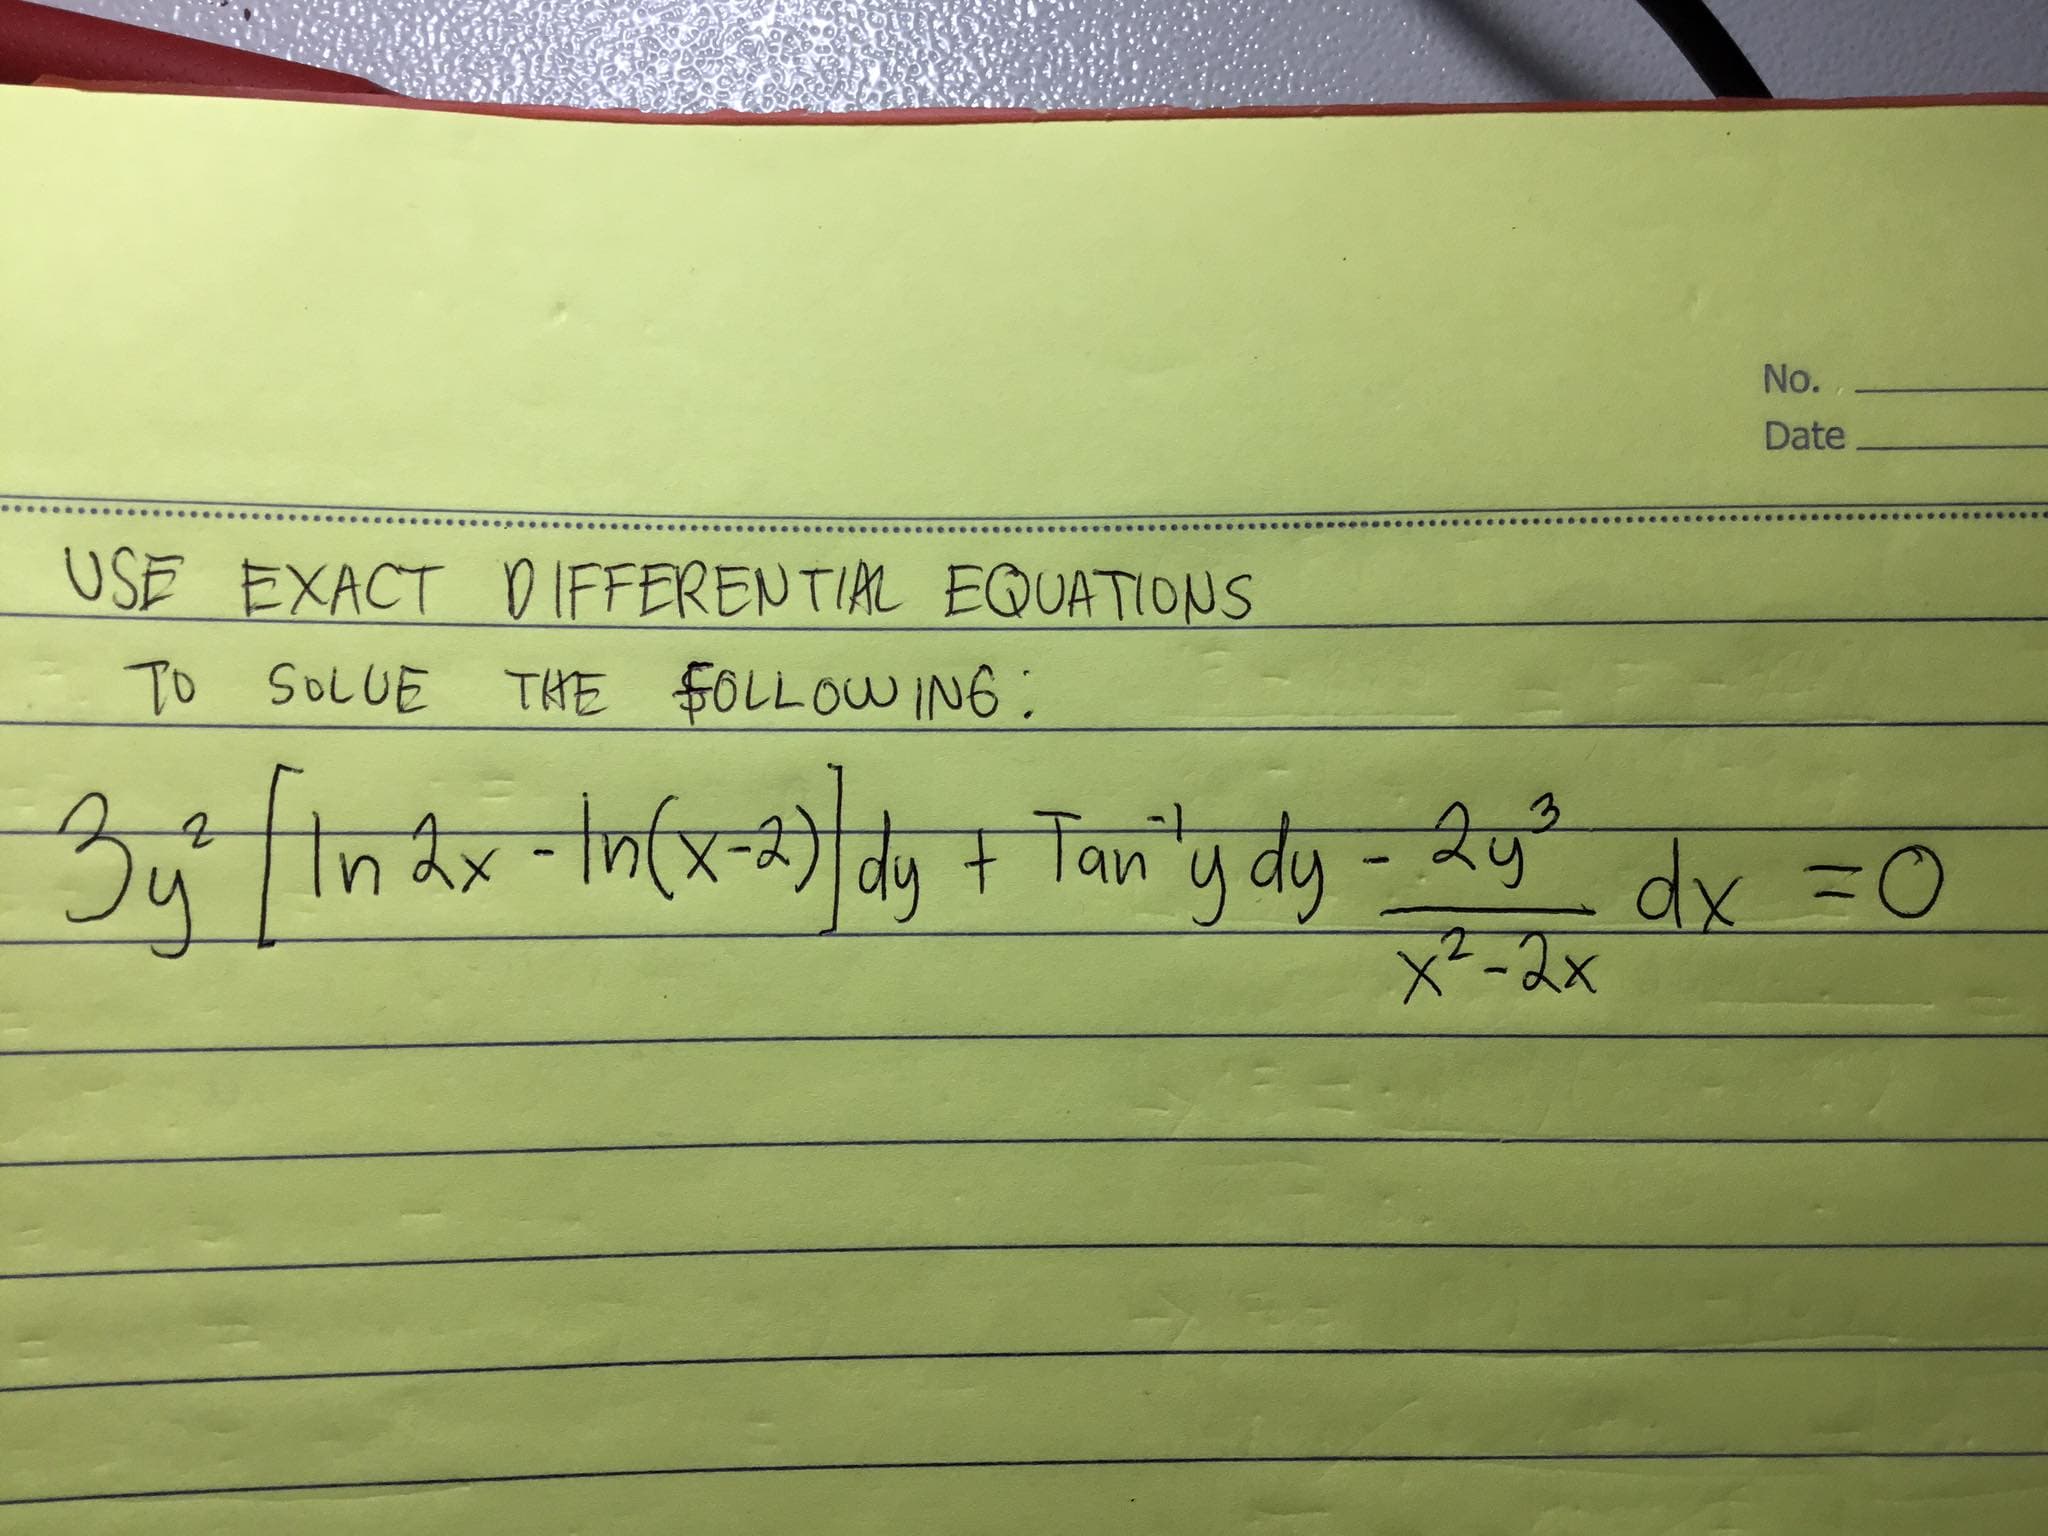 No.
Date
USE EXACT DIFFERENTIAL EQUATIONS
TO SOLVE THE FOLLOWING:
3y² [ln 2x - ln(x-2)] dy + Tan⁻¹y dy - 2y³/(x²-2x) dx = 0